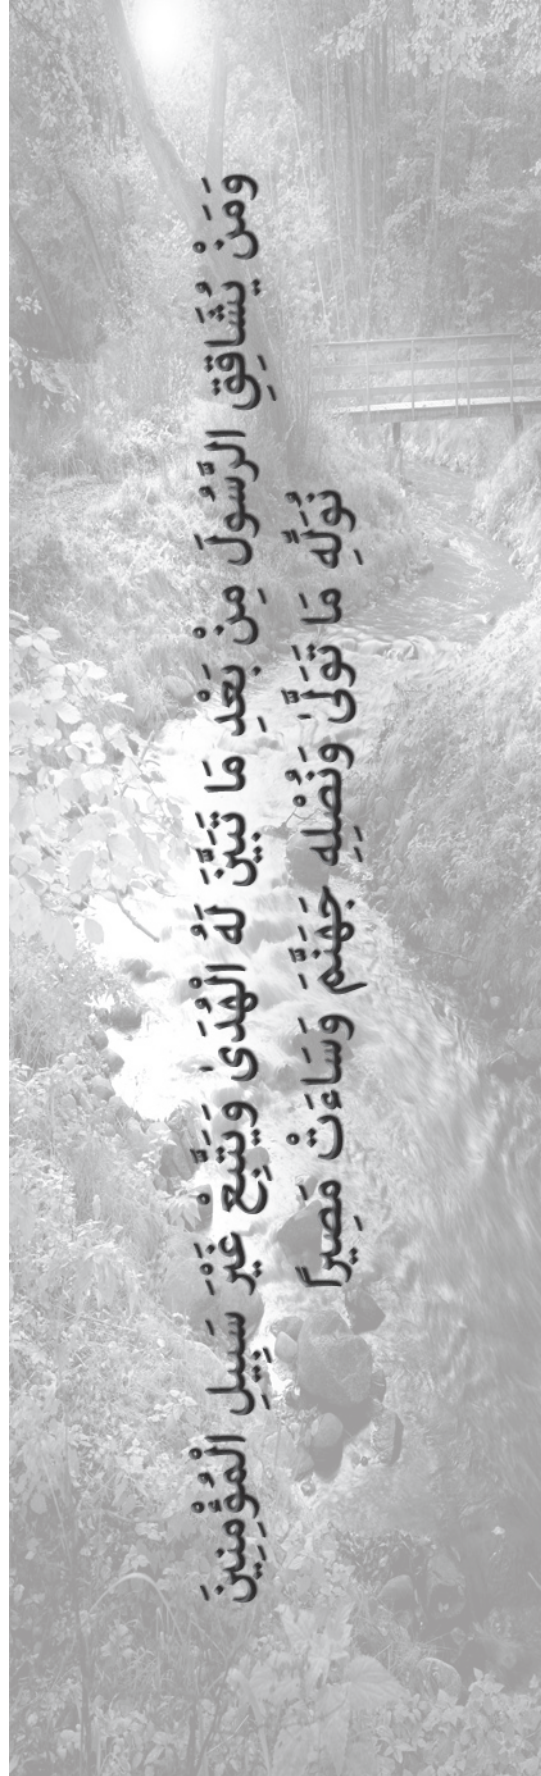 وَمَنْ يُشَاقِقِ الرَّسُولَ مِنْ بَعْدِ مَا تَبَيَّنَ لَهُ الْهُدَىٰ وَيَتَّبِعْ غَيْرَ سَبِيلِ الْمُؤْمِنِينَ
نُوَلِّهِ مَا تَوَلَّىٰ وَنُصْلِهِ جَهَنَّمَ وَسَاءَتْ مَصِيراً